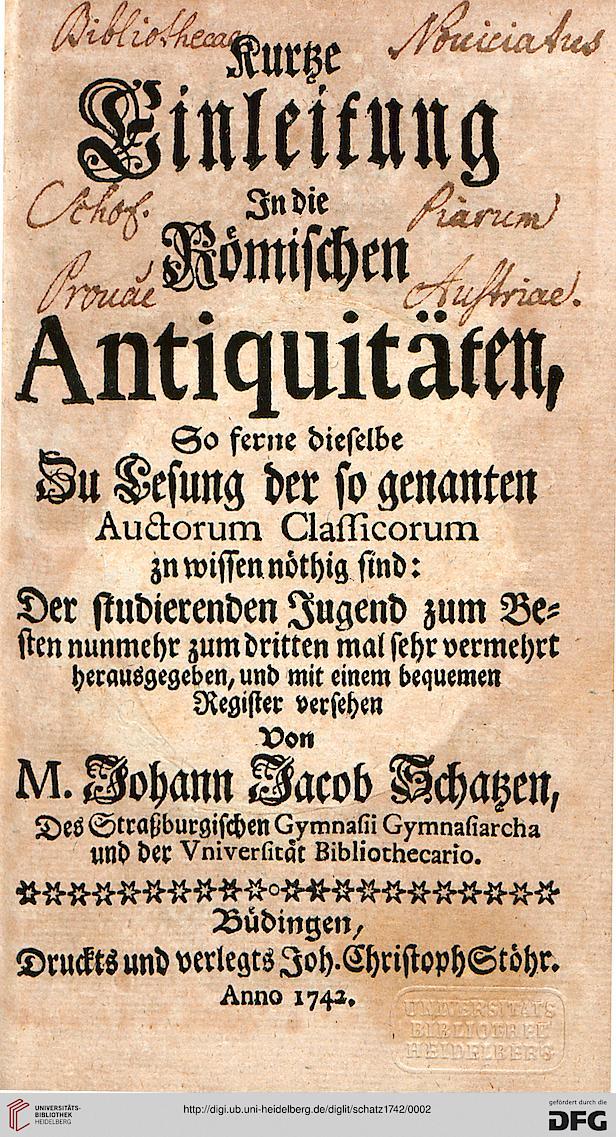 Bibliothecae Nouiciatus
Kurtze
Einleitung
In die
Schol. Piarum
Römischen
Prouae Austriae.
Antiquitäten,
So ferne dieselbe
Zu Lesung der so genanten
Auctorum Classicorum
zu wissen nöthig sind:
Der studierenden Jugend zum Be-
sten nunmehr zum dritten mal sehr vermehrt
herausgegeben, und mit einem bequemen
Register versehen
Von
M. Johann Jacob Schatzen,
Des Straßburgischen Gymnasii Gymnasiarcha
und der Vniversität Bibliothecario.
Büdingen,
Druckts und verlegts Joh. Christoph Stöhr.
Anno 1742.
UNIVERSITÄTS
BIBLIOTHEK
HEIDELBERG
UNIVERSITÄTS-
BIBLIOTHEK
HEIDELBERG
http://digi.ub.uni-heidelberg.de/diglit/schatz1742/0002
gefördert durch die
DFG